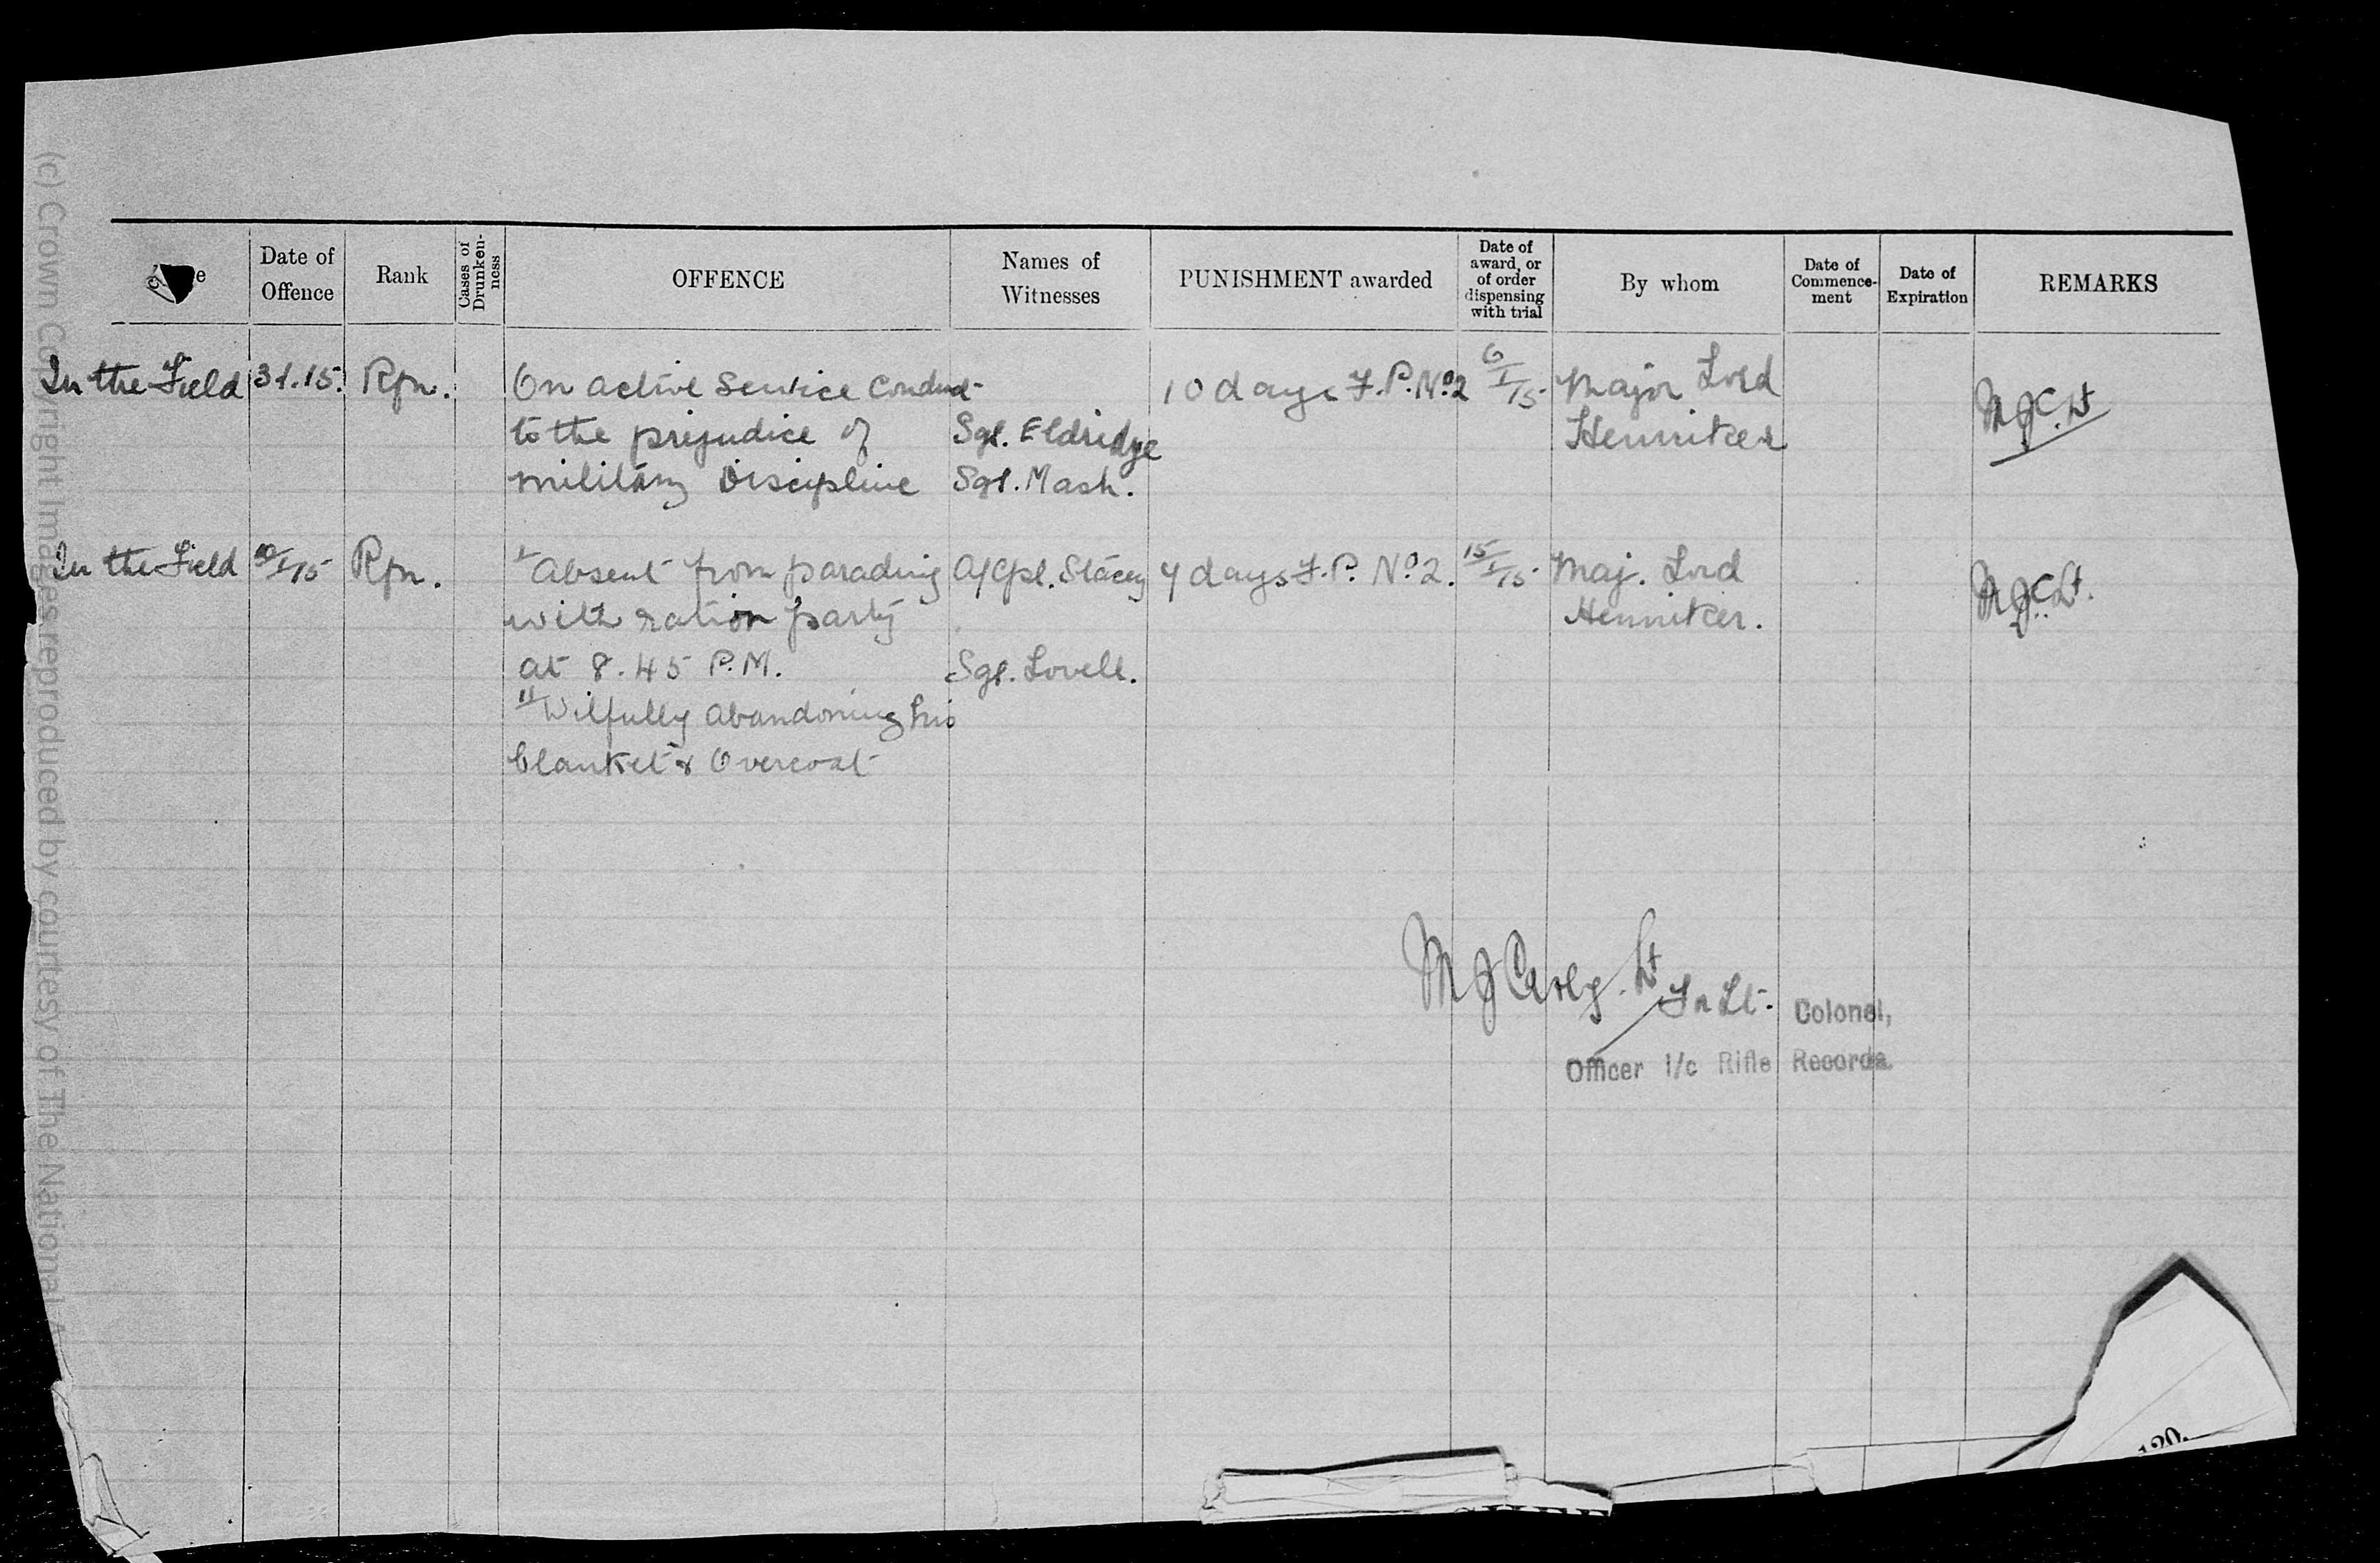 Date of
Offence
Rank
Cases of
Drunken-
ness
OFFENCE
Names of
Witnesses
PUNISHMENT awarded
Date of
award, or
of order
dispensing
with trial
By whom
Date of
Commence-
ment
Date of
Expiration
REMARKS
In the Field 31.15. Rfn. On active Service Conduct 10 days F.P. No. 2 6/I/15. Major Lord
to the prejudice of Sgt. Eldridge Henniker
military Discipline Sgt. Mash.
MJC. Lt
In the Field 10/I/15 Rfn. I Absent from parading A/Cpl. Stacey 4 days F.P. No. 2. 15/I/15. Maj. Lord
with ration party Henniker.
MJC. Lt.
at 8.45 P.M. Sgt. Lovell.
II Wilfully abandoning his
blanket & Overcoat
M J Lt
Fr Lt. Colonel,
Officer i/c Rifle Records.
(c) Crown Copyright Images reproduced by courtesy of The National